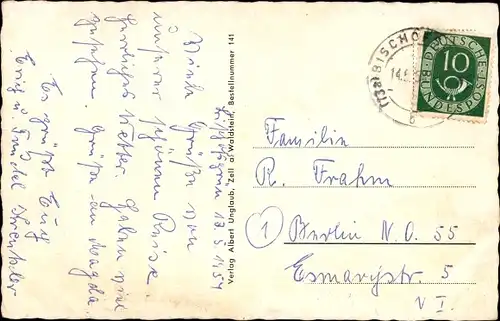 Bischofsgrün 13.5.1954
Viele Grüße von
unserer schönen Reise.
Herrliches Wetter. Haben viel
gesehen. Grüße an Magda.
Es grüßt Euch
Erich u.
Verlag Albert Unglaub, Zell a/Waldstein, Bestellnummer 141
(13a) BISCHO
14.5
b
DEUTSCHE BUNDESPOST
10
Familie
R. Frahm
1 Berlin N.O. 55
Esmarchstr. 5
VI.